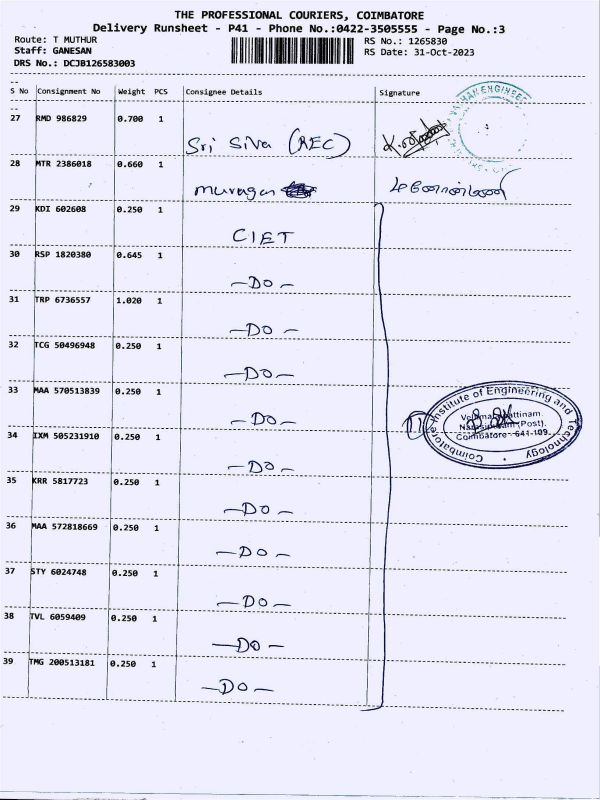 THE PROFESSIONAL COURIERS, COIMBATORE
Delivery Runsheet - P41 - Phone No.:0422-3505555 - Page No.:3
Route: T MUTHUR RS No.: 1265830
Staff: GANESAN RS Date: 31-Oct-2023
DRS No.: DCJB126583003
S No Consignment No Weight PCS Consignee Details Signature
27 RMD 986829 0.700 1 Sri Siva (REC)
28 MTR 2386018 0.660 1 Murugan
29 KDI 602608 0.250 1 CIET
30 RSP 1820380 0.645 1 -DO-
31 TRP 6736557 1.020 1 -DO-
32 TCG 50496948 0.250 1 -DO-
33 MAA 570513839 0.250 1 -DO-
34 IXM 505231910 0.250 1 -DO-
35 KRR 5817723 0.250 1 -DO-
36 MAA 572818669 0.250 1 -DO-
37 STY 6024748 0.250 1 -DO-
38 TVL 6059409 0.250 1 -DO-
39 TMG 200513181 0.250 1 -DO-
11
Coimbatore Institute of Engineering and Technology
(Post),
Coimbatore - 641 109.